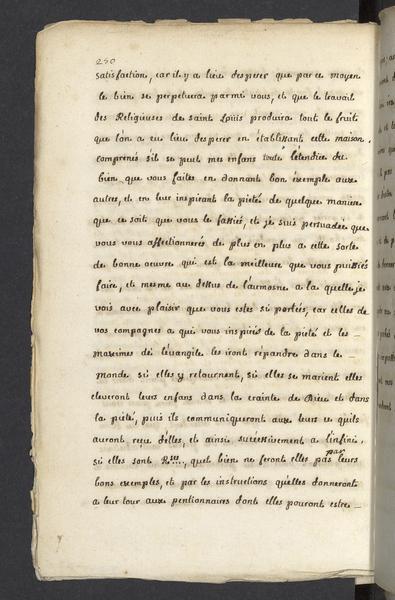 250
satisfaction, car il y a lieu desperer que par ce moyen
le bien se perpetuera parmi vous, et que le travail
des Religieuses de saint Loüis produira tout le fruit
que l'on a eu lieu desperer en établissant cette maison.
comprenés s'il se peut mes enfans toute l'etendüe du
bien que vous faites en donnant bon exemple aux
autres, et en leur inspirant la pieté de quelque maniere
que ce soit que vous le fassiés, et je suis persuadée que
vous vous affectionnerés de plus en plus a cette sorte
de bonne oeuvre qui est la meilleure que vous puissiés
faire, et mesme au dessus de l'aumosne a la quelle je
vois avec plaisir que vous estes si portées, car celles de
vos compagnes a qui vous inspirés de la pieté et les
maximes de l'évangile les iront répandre dans le
monde si elles y retournent, si elles se marient elles
eleveront leurs enfans dans la crainte de Dieu et dans
la piété, puis ils communiqueront aux leurs ce quils
auront reçu d'elles, et ainsi successivement a l'infini,
si elles sont Rses, quel bien ne feront elles pas par leurs
bons exemples, et par les instructions qu'elles donneront
a leur tour aux pentionnaires dont elles pouront estre